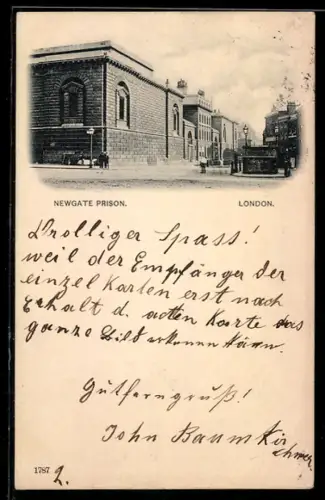 NEWGATE PRISON. LONDON.
Drolliger Spass!
weil der Empfänger der
einzel Karten erst nach
Erhalt d. acten Karte das
ganze Bild erkenen kann.
Gutferngruß!
John Baumkir
chner.
1787 2.